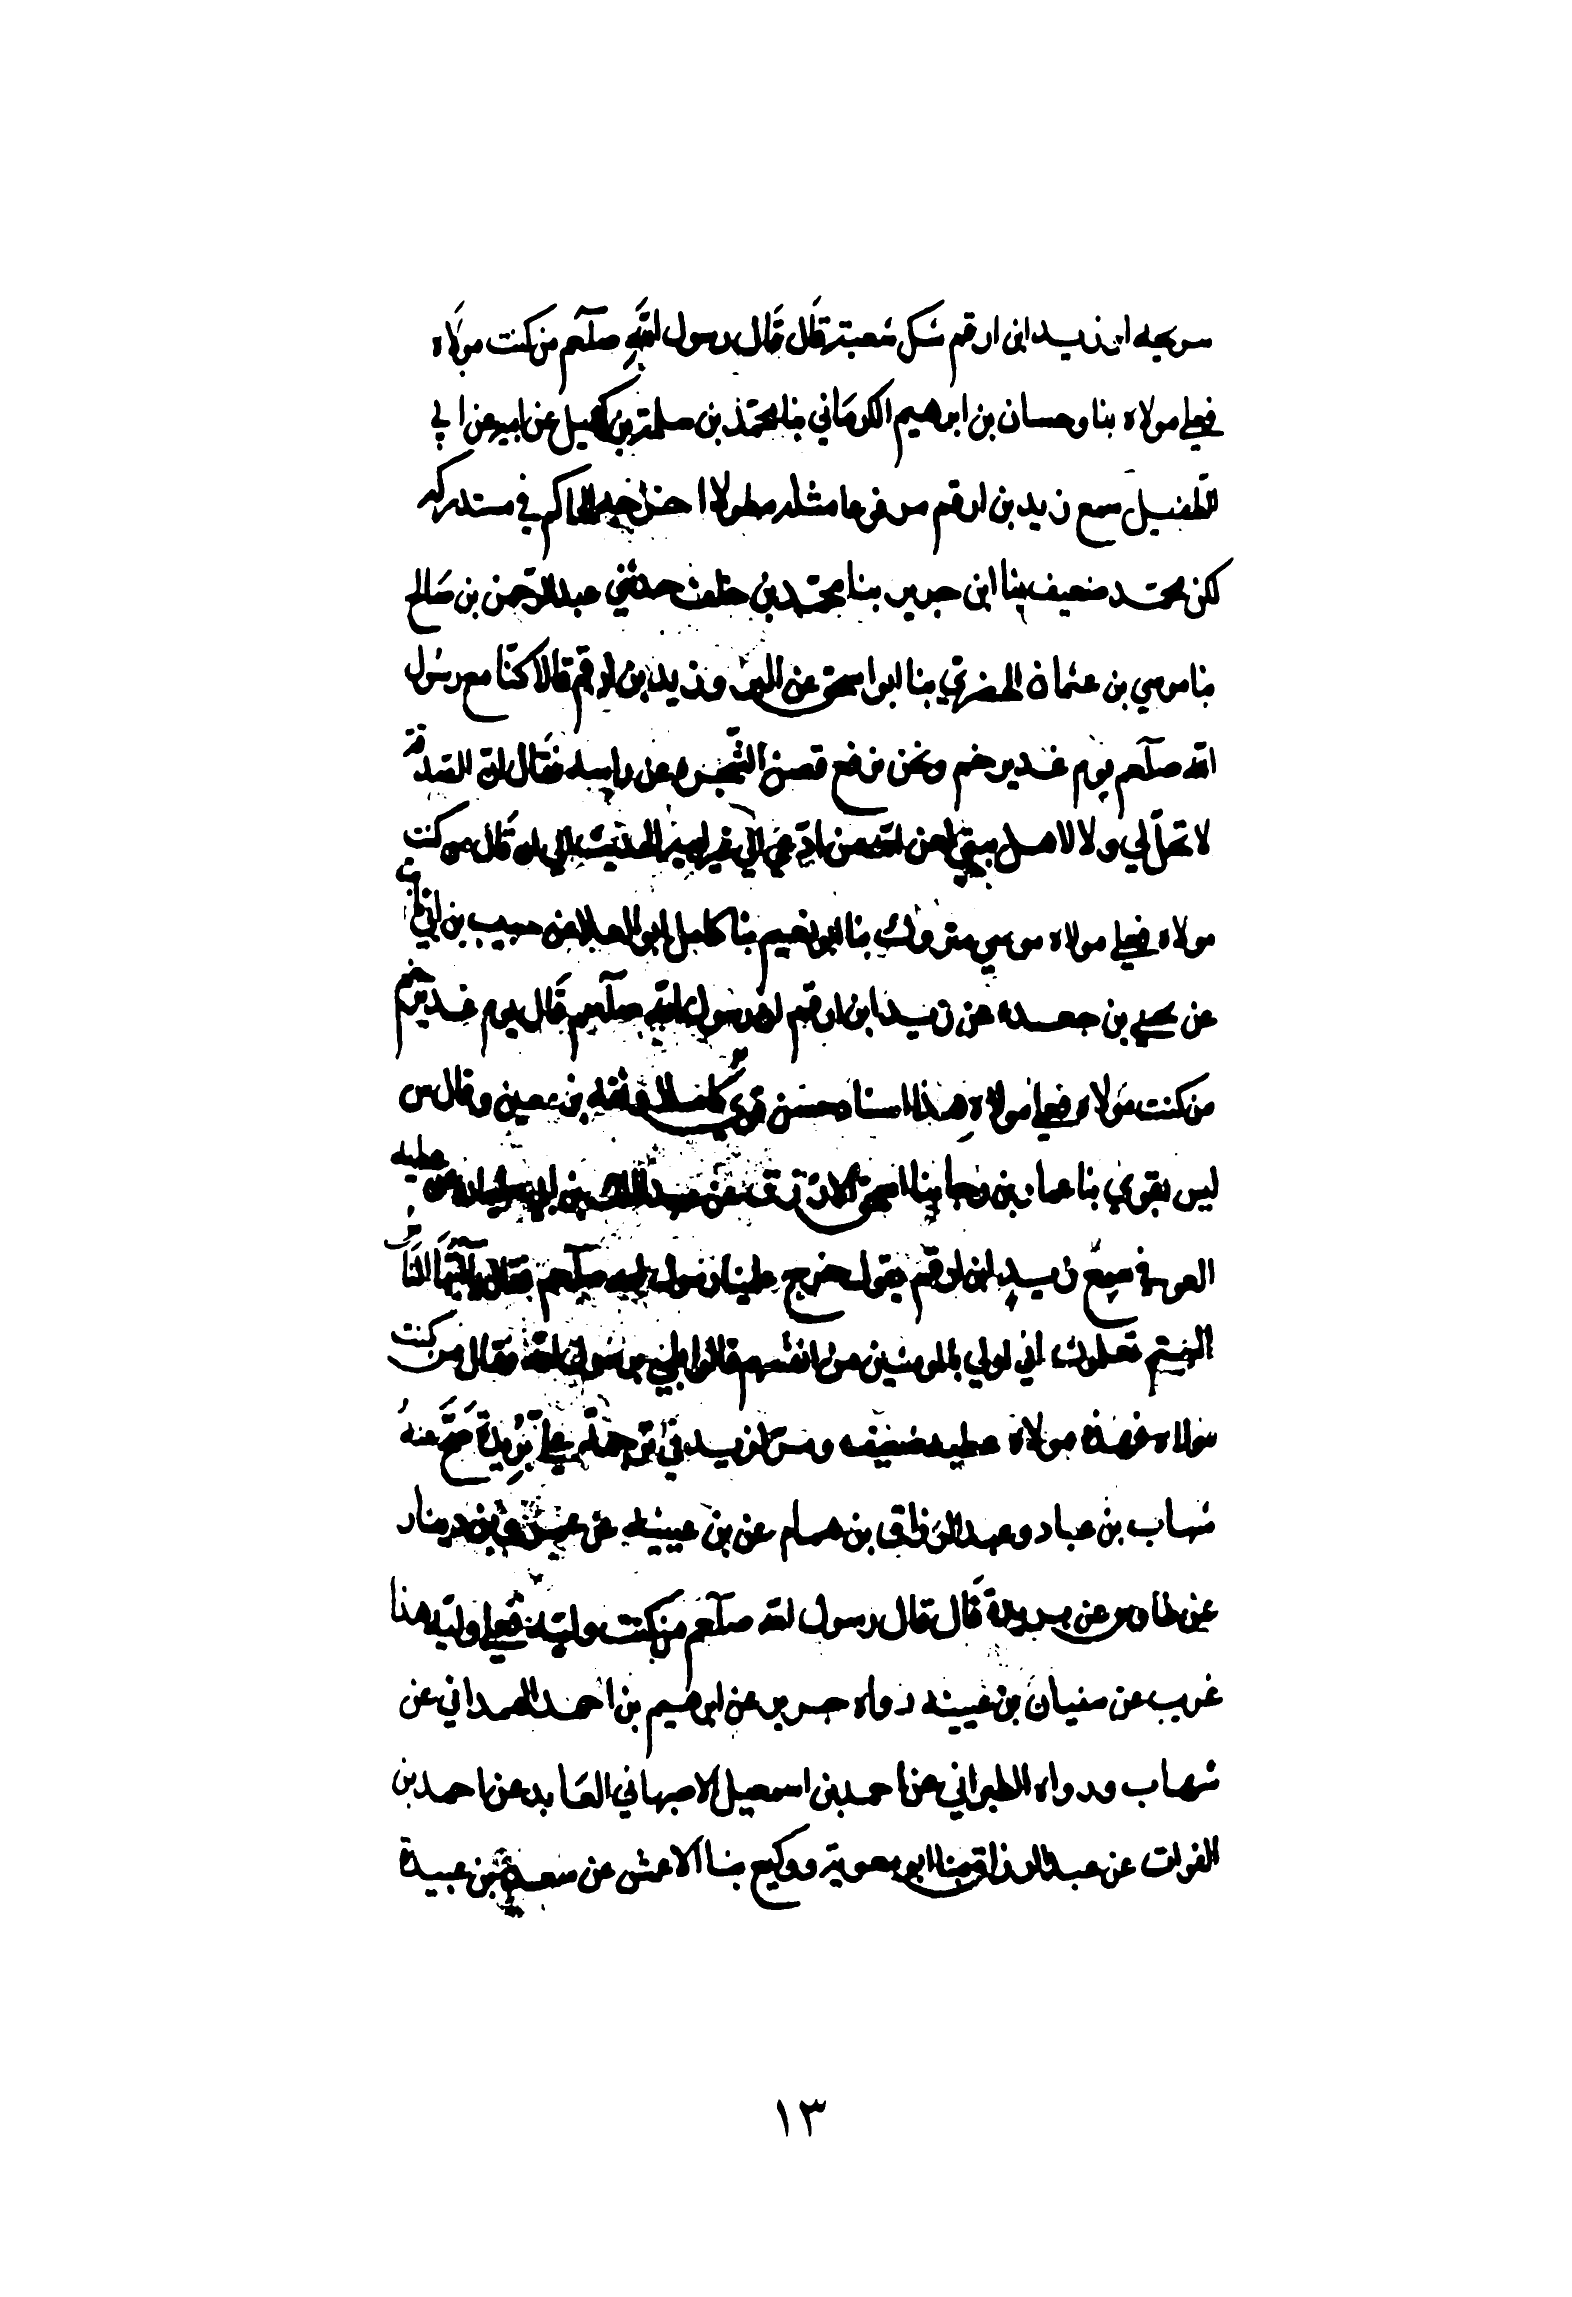 سريحه او زيد ابن ارقم شك شعبة قال قال رسول الله صلعم من كنت مولاه
فعلي مولاه ثنا وحسان بن ابرهيم الكرماني ثنا محمد بن سلمة بن كهيل عن ابيه عن ابي
الطفيل سمع زيد بن ارقم مرفوعا مثله مطولا اخرجه الحاكم في مستدركه
لكن محمد ضعيف ثنا ابن جرير ثنا محمد بن خلف حدثني عبد الرحمن بن صالح
ثنا موسي بن عثمان الحضرمي ثنا ابو اسحق عن البرا وزيد بن ارقم قالا كنا مع رسول
الله صلعم يوم غدير خم ونحن نرفع غصن الشجره عن راسه فقال ان الصدقة
لا تحل لي ولا لاهل بيتي لعن الله من ادعي الي غير ابيه الحديث الي ان قال من كنت
مولاه فعلي مولاه موسي متروك ثنا ابو نعيم ثنا كامل ابو العلا عن حبيب بن ابي ثابت
عن يحيي بن جعده عن زيد ابن ارقم ان رسول الله صلعم قال يوم غدير خم
من كنت مولاه فعلي مولاه هذا اسناد حسن قوي كامل وثقه بن معين وقال س
ليس بقوي ثنا عمار بن رجا ثنا اسحق الازرق عن عبد الملك بن ابي سليمان عن عطيه
العوفي سمع زيد ابن ارقم يقول خرج علينا رسول الله صلعم فقال يا ايها الناس
الستم تعلمون اني اولي بالمومنين من انفسهم قالوا بلي يا رسول الله فقال من كنت
مولاه فهذا مولاه عطيه ضعيف ومر لزيد في ترجمة علي بريدة صح عنه
شهاب بن عباد وعبد الرزاق بن همام عن بن عيينه عن عمرو بن دينار
عن طاوس عن بريدة قال قال رسول الله صلعم من كنت وليه فعلي وليه هذا
غريب عن سفيان بن عيينه رواه جرير عن ابرهيم بن احمد الهمداني عن
شهاب ورواه الطبراني عن احمد بن اسمعيل الاصبهاني العابد عن احمد بن
الفرات عن عبد الرزاق ثنا ابو معوية ووكيع ثنا الاعمش عن سعد بن عبيدة
١٣